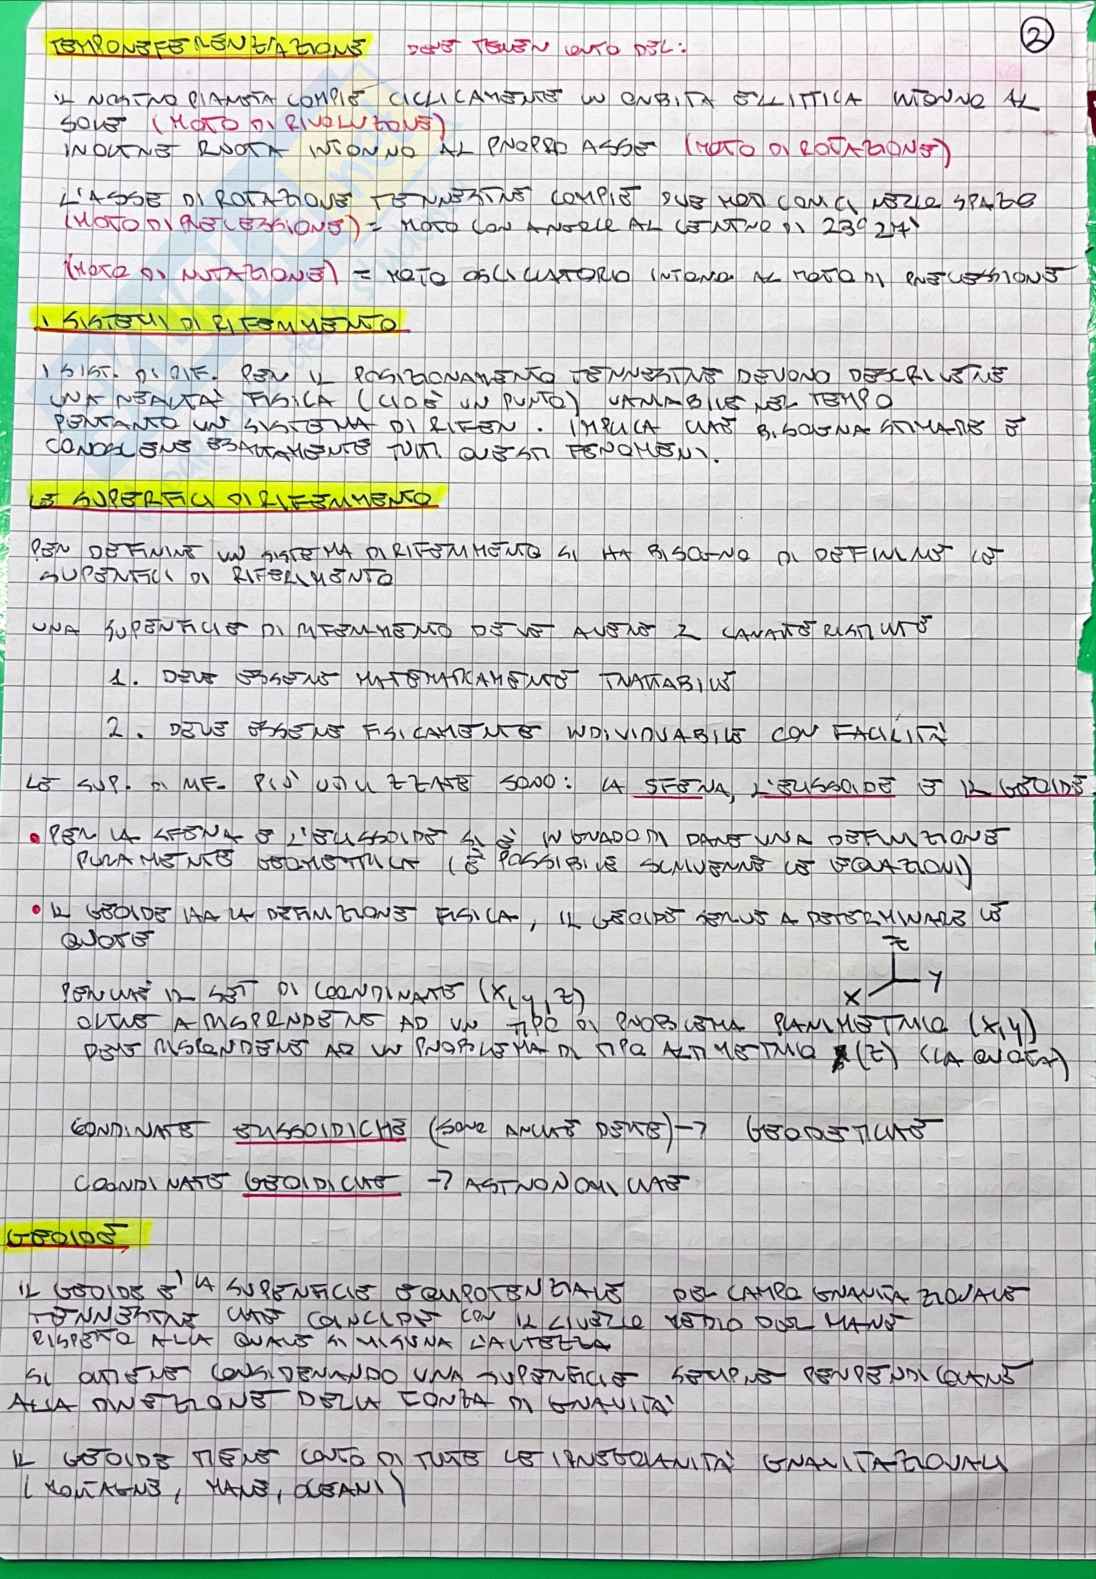 2
TEMPOREFERENZIAZIONE DEVE TENER CONTO DEL:
IL NOSTRO PIANETA COMPIE CICLICAMENTE UN ORBITA ELLITTICA INTORNO AL
SOLE (MOTO DI RIVOLUZIONE)
INOLTRE RUOTA INTORNO AL PROPRIO ASSE (MOTO DI ROTAZIONE)
L'ASSE DI ROTAZIONE TERRESTRE COMPIE DUE MOTI CONICI NELLO SPAZIO
(MOTO DI PRECESSIONE) = MOTO CON ANGOLO AL CENTRO DI 23° 27'
(MOTO DI NUTAZIONE) = MOTO OSCILLATORIO INTORNO AL MOTO DI PRECESSIONE
I SISTEMI DI RIFERIMENTO
I SIST. DI RIF. PER IL POSIZIONAMENTO TERRESTRE DEVONO DESCRIVERE
UNA REALTÀ FISICA (CIOÈ UN PUNTO) VARIABILE NEL TEMPO
PERTANTO UN SISTEMA DI RIFER. IMPLICA CHE BISOGNA STIMARE E
CONOSCERE ESATTAMENTE TUTTI QUESTI FENOMENI.
LE SUPERFICI DI RIFERIMENTO
PER DEFINIRE UN SISTEMA DI RIFERIMENTO SI HA BISOGNO DI DEFINIRE LE
SUPERFICI DI RIFERIMENTO
UNA SUPERFICIE DI RIFERIMENTO DEVE AVERE 2 CARATTERISTICHE
1. DEVE ESSERE MATEMATICAMENTE TRATTABILE
2. DEVE ESSERE FISICAMENTE INDIVIDUABILE CON FACILITÀ
LE SUP. DI RIF. PIÙ UTILIZZATE SONO: LA SFERA, L'ELLISSOIDE E IL GEOIDE
• PER LA SFERA E L'ELLISSOIDE SI È IN GRADO DI DARE UNA DEFINIZIONE
PURAMENTE GEOMETRICA (È POSSIBILE SCRIVERNE LE EQUAZIONI)
• IL GEOIDE HA LA DEFINIZIONE FISICA, IL GEOIDE SERVE A DETERMINARE LE
QUOTE
Z
Y
X
PERCHÈ IL SET DI COORDINATE (X, Y, Z)
OLTRE A RISPONDERE AD UN TIPO DI PROBLEMA PLANIMETRICO (X, Y)
DEVE RISPONDERE AD UN PROBLEMA DI TIPO ALTIMETRICO (Z) (LA QUOTA)
COORDINATE ELLISSOIDICHE (SONO ANCHE DETTE) → GEODETICHE
COORDINATE GEOIDICHE → ASTRONOMICHE
GEOIDE
IL GEOIDE E' LA SUPERFICIE EQUIPOTENZIALE DEL CAMPO GRAVITAZIONALE
TERRESTRE CHE COINCIDE CON IL LIVELLO MEDIO DEL MARE
RISPETTO ALLA QUALE SI MISURA L'ALTEZZA
SI OTTIENE CONSIDERANDO UNA SUPERFICIE SEMPRE PERPENDICOLARE
ALLA DIREZIONE DELLA FORZA DI GRAVITA'
IL GEOIDE TIENE CONTO DI TUTTE LE IRREGOLARITÀ GRAVITAZIONALI
(MONTAGNE, MARE, OCEANI)